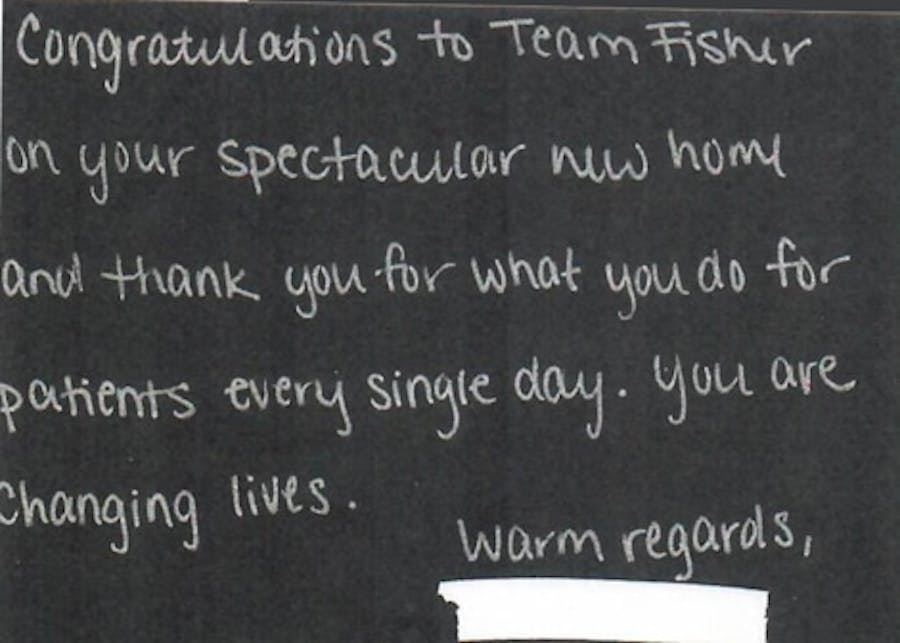 Congratulations to Team Fisher
on your spectacular new home
and thank you for what you do for
patients every single day. You are
changing lives.
Warm regards,